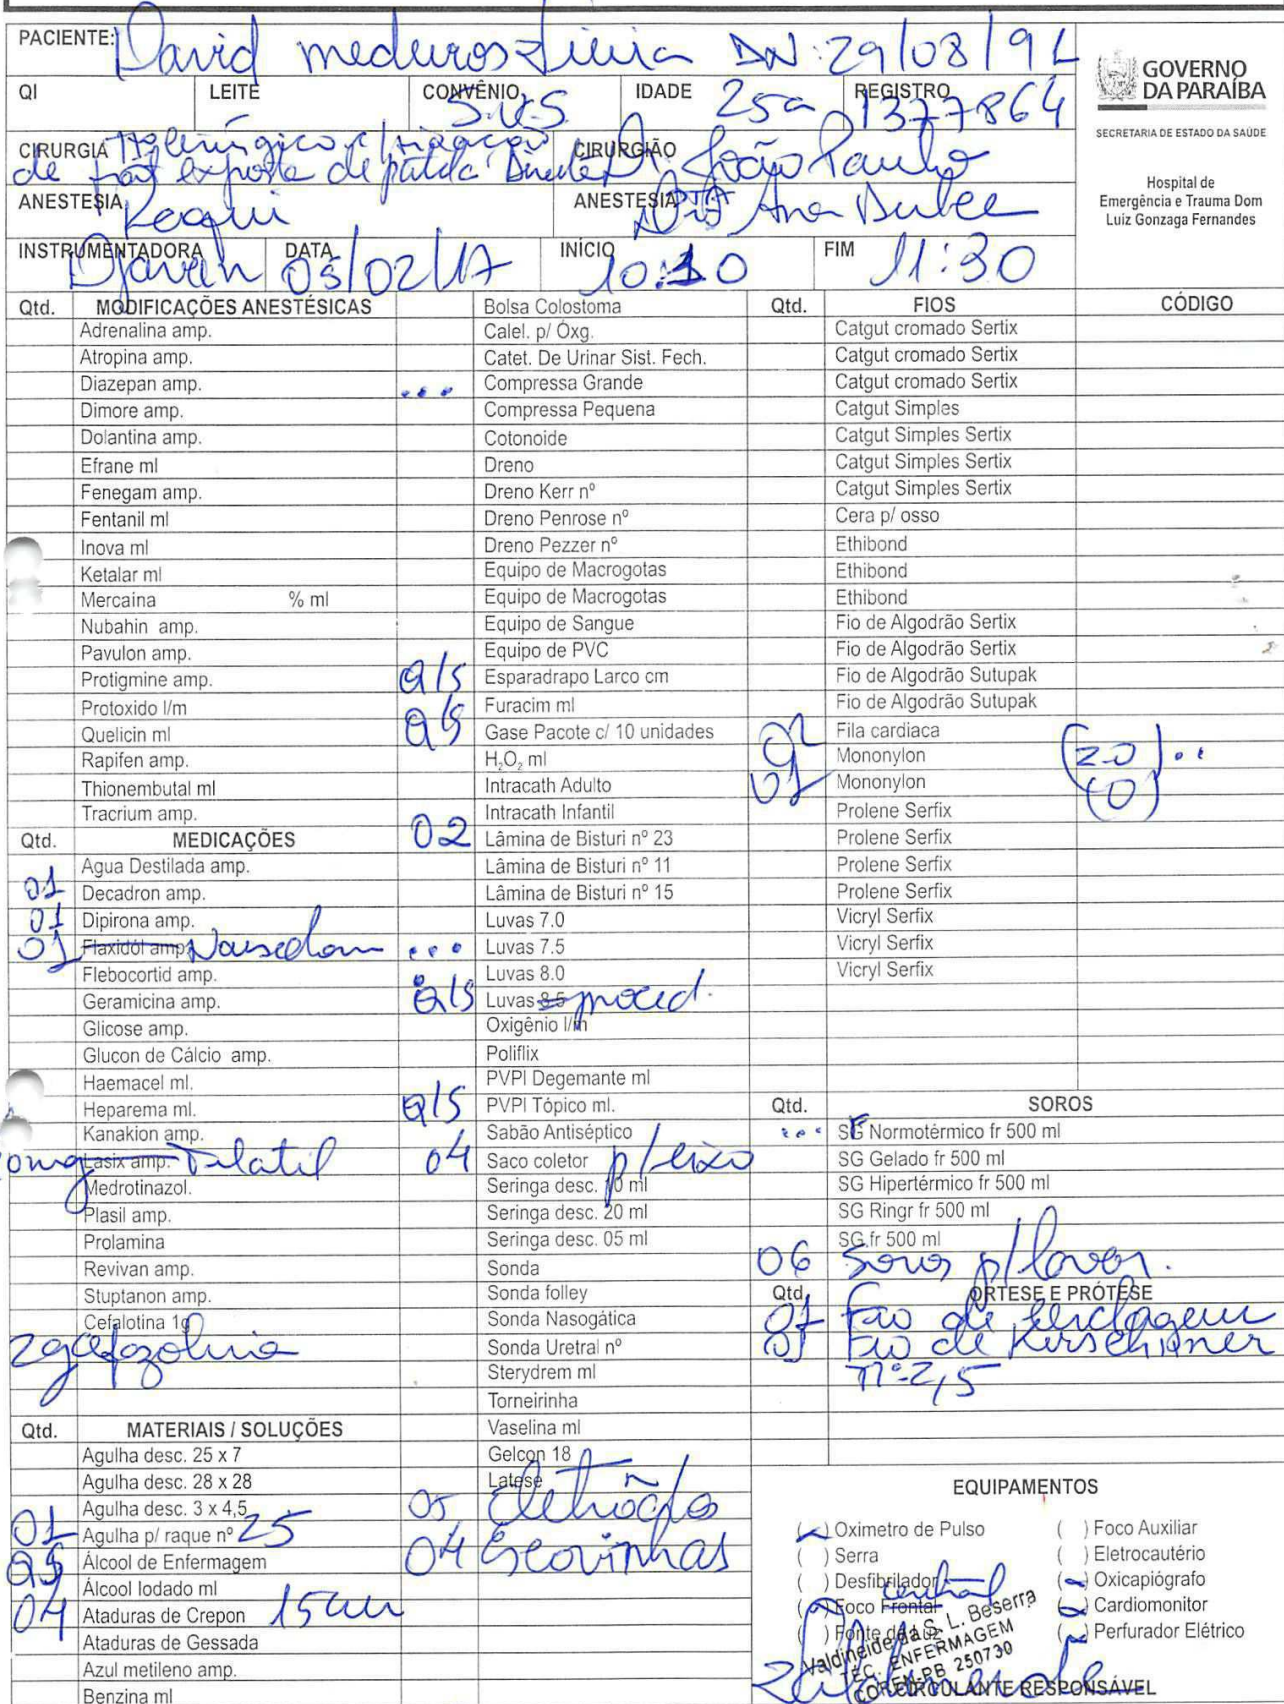 PACIENTE: David medeiros Livia DN: 29/08/91
GOVERNO
DA PARAÍBA
SECRETARIA DE ESTADO DA SAÚDE
Hospital de
Emergência e Trauma Dom
Luiz Gonzaga Fernandes
QI LEITE CONVÊNIO S.U.S IDADE 25a REGISTRO 1377864
CIRURGIA cirúrgico c/ fixação
de frat exposta de patela Direita
CIRURGIÃO Dr. João Paulo
ANESTESIA Raqui ANESTESIA Ana
INSTRUMENTADORA Djavan DATA 05/02/17 INÍCIO 10:10 FIM 11:30
Qtd. MODIFICAÇÕES ANESTÉSICAS
Adrenalina amp.
Atropina amp.
Diazepan amp.
Dimore amp.
Dolantina amp.
Efrane ml
Fenegam amp.
Fentanil ml
Inova ml
Ketalar ml
Mercaina % ml
Nubahin amp.
Pavulon amp.
Protigmine amp.
Protoxido l/m
Quelicin ml
Rapifen amp.
Thionembutal ml
Tracrium amp.
Qtd. MEDICAÇÕES
Agua Destilada amp.
01 Decadron amp.
01 Dipirona amp.
01 Flaxidol amp. Nausedron
Flebocortid amp.
Geramicina amp.
Glicose amp.
Glucon de Cálcio amp.
Haemacel ml.
Heparema ml.
Kanakion amp.
omg Lasix amp. Tilatil
Medrotinazol.
Plasil amp.
Prolamina
Revivan amp.
Stuptanon amp.
Cefalotina 1g
2g cefazolina
Qtd. MATERIAIS / SOLUÇÕES
Agulha desc. 25 x 7
Agulha desc. 28 x 28
Agulha desc. 3 x 4,5
01 Agulha p/ raque nº 25
QS Álcool de Enfermagem
Álcool Iodado ml
04 Ataduras de Crepon 15cm
Ataduras de Gessada
Azul metileno amp.
Benzina ml
Bolsa Colostoma
Calel. p/ Óxg.
Catet. De Urinar Sist. Fech.
... Compressa Grande
Compressa Pequena
Cotonoide
Dreno
Dreno Kerr nº
Dreno Penrose nº
Dreno Pezzer nº
Equipo de Macrogotas
Equipo de Macrogotas
Equipo de Sangue
Equipo de PVC
Q/S Esparadrapo Larco cm
Furacim ml
Q/S Gase Pacote c/ 10 unidades
H₂O₂ ml
Intracath Adulto
Intracath Infantil
02 Lâmina de Bisturi nº 23
Lâmina de Bisturi nº 11
Lâmina de Bisturi nº 15
Luvas 7.0
... Luvas 7.5
Luvas 8.0
Q/S Luvas 8.5 proced.
Oxigênio l/m
Poliflix
PVPI Degemante ml
Q/S PVPI Tópico ml.
Sabão Antiséptico
04 Saco coletor p/ lixo
Seringa desc. 10 ml
Seringa desc. 20 ml
Seringa desc. 05 ml
Sonda
Sonda folley
Sonda Nasogática
Sonda Uretral nº
Sterydrem ml
Torneirinha
Vaselina ml
Gelcon 18
Latese
05 eletrodos
04 Escovinhas
Qtd. FIOS CÓDIGO
Catgut cromado Sertix
Catgut cromado Sertix
Catgut cromado Sertix
Catgut Simples
Catgut Simples Sertix
Catgut Simples Sertix
Catgut Simples Sertix
Cera p/ osso
Ethibond
Ethibond
Ethibond
Fio de Algodrão Sertix
Fio de Algodrão Sertix
Fio de Algodrão Sutupak
Fio de Algodrão Sutupak
Fila cardiaca
02 Mononylon (2.0) ..
01 Mononylon (0)
Prolene Serfix
Prolene Serfix
Prolene Serfix
Prolene Serfix
Vicryl Serfix
Vicryl Serfix
Vicryl Serfix
Qtd. SOROS
... SF Normotérmico fr 500 ml
SG Gelado fr 500 ml
SG Hipertérmico fr 500 ml
SG Ringr fr 500 ml
SG.fr 500 ml
06 Soros p/ lavar.
Qtd. ÓRTESE E PRÓTESE
01 Fio de cerclagem
01 Fio de Kirschner
nº 2,5
EQUIPAMENTOS
( ) Oximetro de Pulso ( ) Foco Auxiliar
( ) Serra ( ) Eletrocautério
( ) Desfibrilador ( ) Oxicapiógrafo
( ) Foco Frontal central ( ) Cardiomonitor
( ) Fonte de Luz ( ) Perfurador Elétrico
Valdineide da S. L. Beserra
TÉC. ENFERMAGEM
COREN-PB 250730
CIRCULANTE RESPONSÁVEL